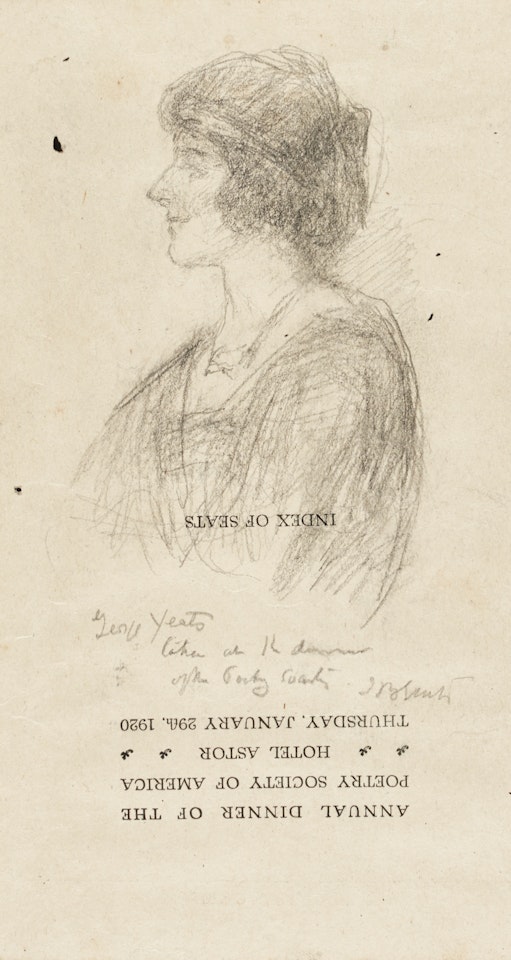 ANNUAL DINNER OF THE
POETRY SOCIETY OF AMERICA
HOTEL ASTOR
THURSDAY, JANUARY 29th, 1920
INDEX OF SEATS
George Yeats
taken at the dinner
of the Poetry Society J B Yeats